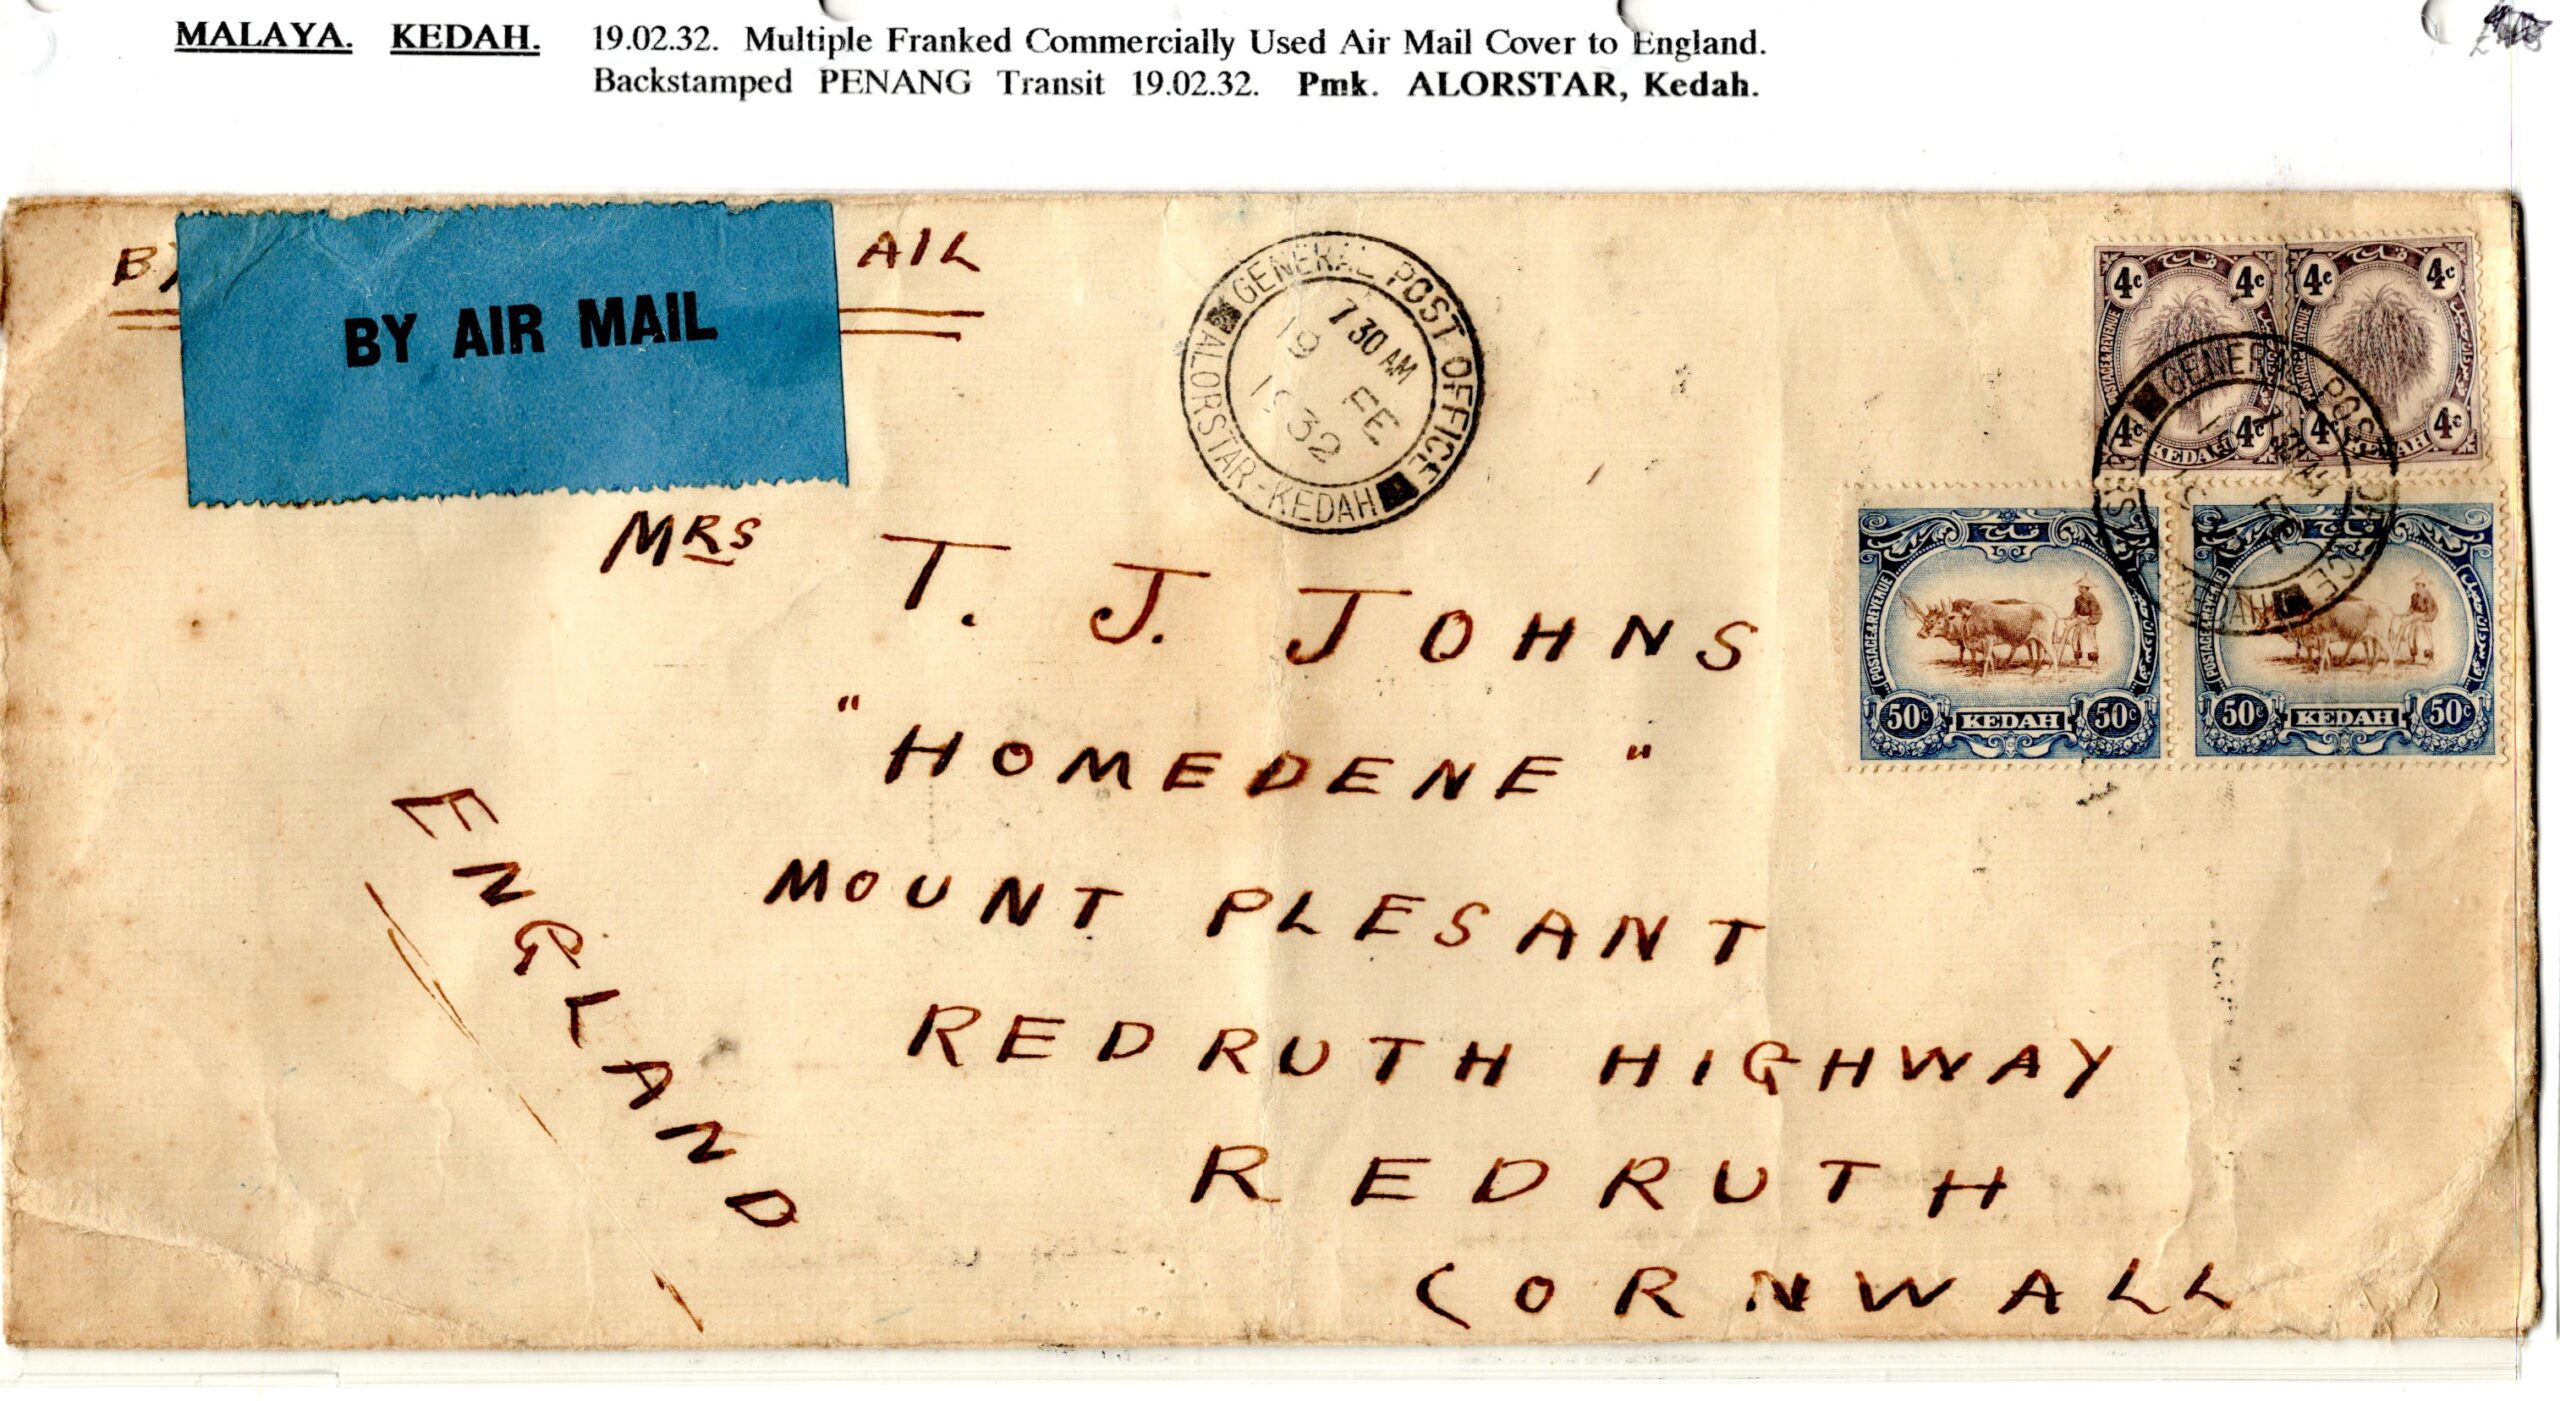 MALAYA. KEDAH. 19.02.32. Multiple Franked Commercially Used Air Mail Cover to England.
Backstamped PENANG Transit 19.02.32. Pmk. ALORSTAR, Kedah.
BY AIL
BY AIR MAIL
GENERAL POST OFFICE
7 30 AM
19 FE
1932
ALORSTAR-KEDAH
4c 4c
POSTAGE & REVENUE
4c 4c
KEDAH
4c 4c
POSTAGE & REVENUE
4c 4c
KEDAH
GENERAL POST OFFICE
POSTAGE & REVENUE
50c KEDAH 50c
POSTAGE & REVENUE
50c KEDAH 50c
MRS T. J. JOHNS
"HOMEDENE"
MOUNT PLESANT
REDRUTH HIGHWAY
REDRUTH
CORNWALL
ENGLAND